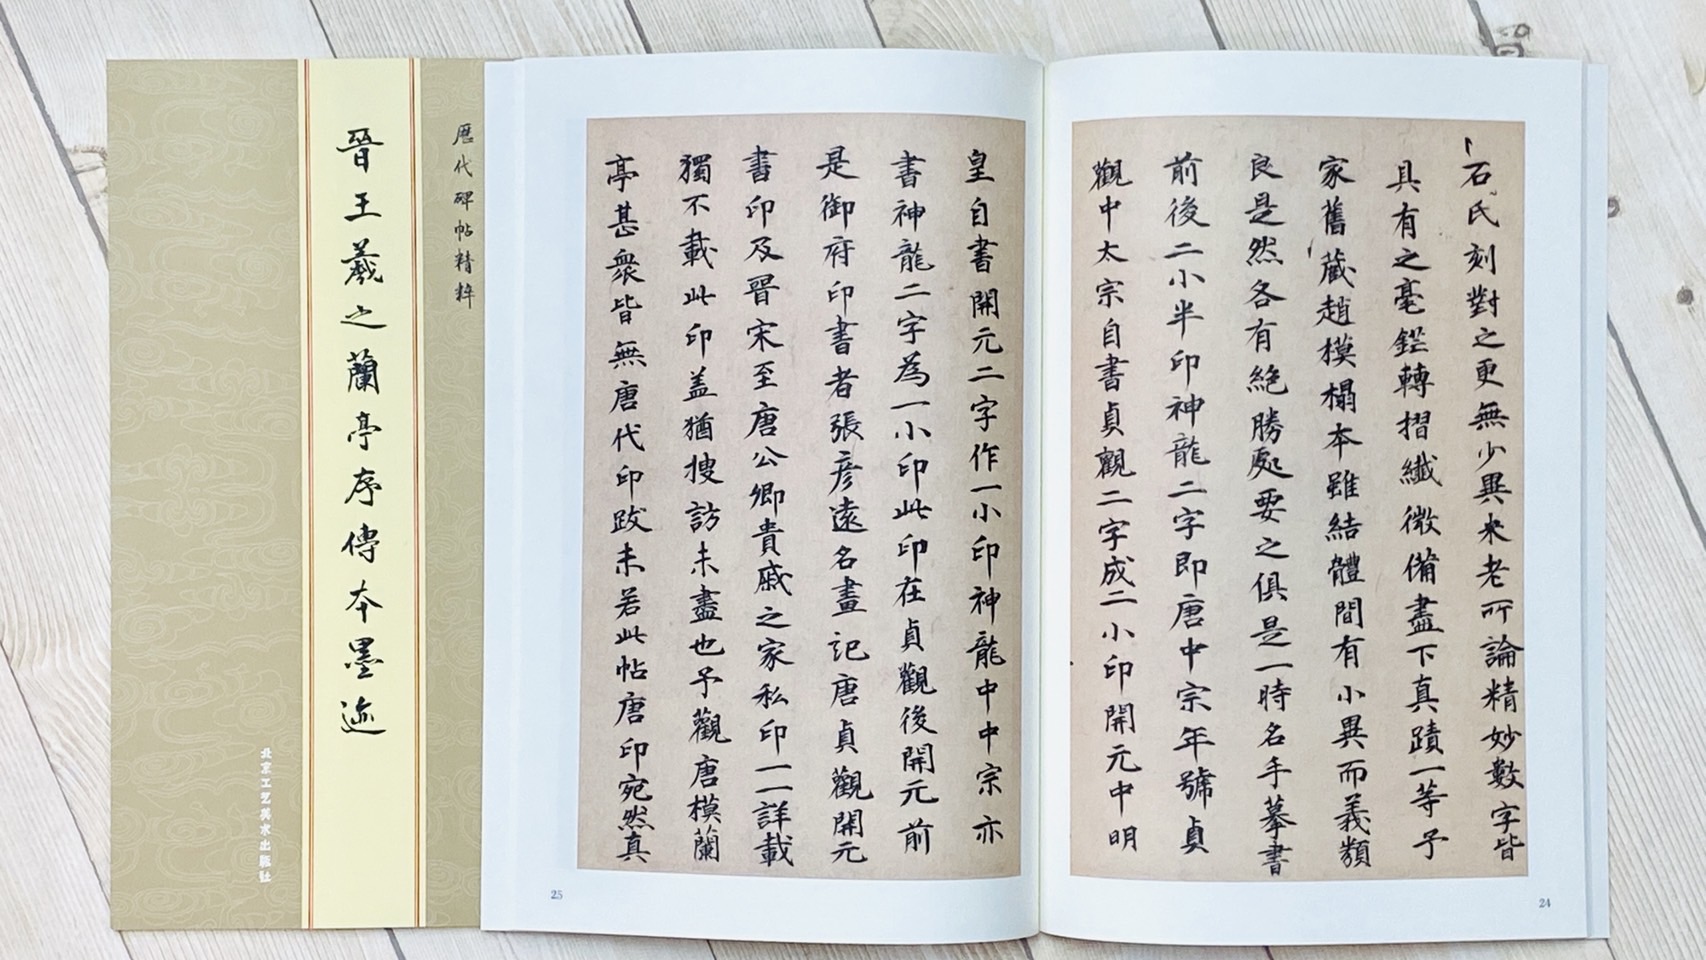 歷代碑帖精粹
晉王羲之蘭亭序傳本墨迹
北京工艺美术出版社
石氏刻對之更無少異米老所論精妙數字皆
具有之毫鋩轉摺纖微備盡下真蹟一等予
家舊藏趙模榻本雖結體間有小異而義類
良是然各有絶勝處要之俱是一時名手摹書
前後二小半印神龍二字即唐中宗年號貞
觀中太宗自書貞觀二字成二小印開元中明
24
皇自書開元二字作一小印神龍中中宗亦
書神龍二字為一小印此印在貞觀後開元前
是御府印書者張彦遠名畫記唐貞觀開元
書印及晉宋至唐公卿貴戚之家私印一一詳載
獨不載此印盖猶搜訪未盡也予觀唐模蘭
亭甚衆皆無唐代印跋未若此帖唐印宛然真
25